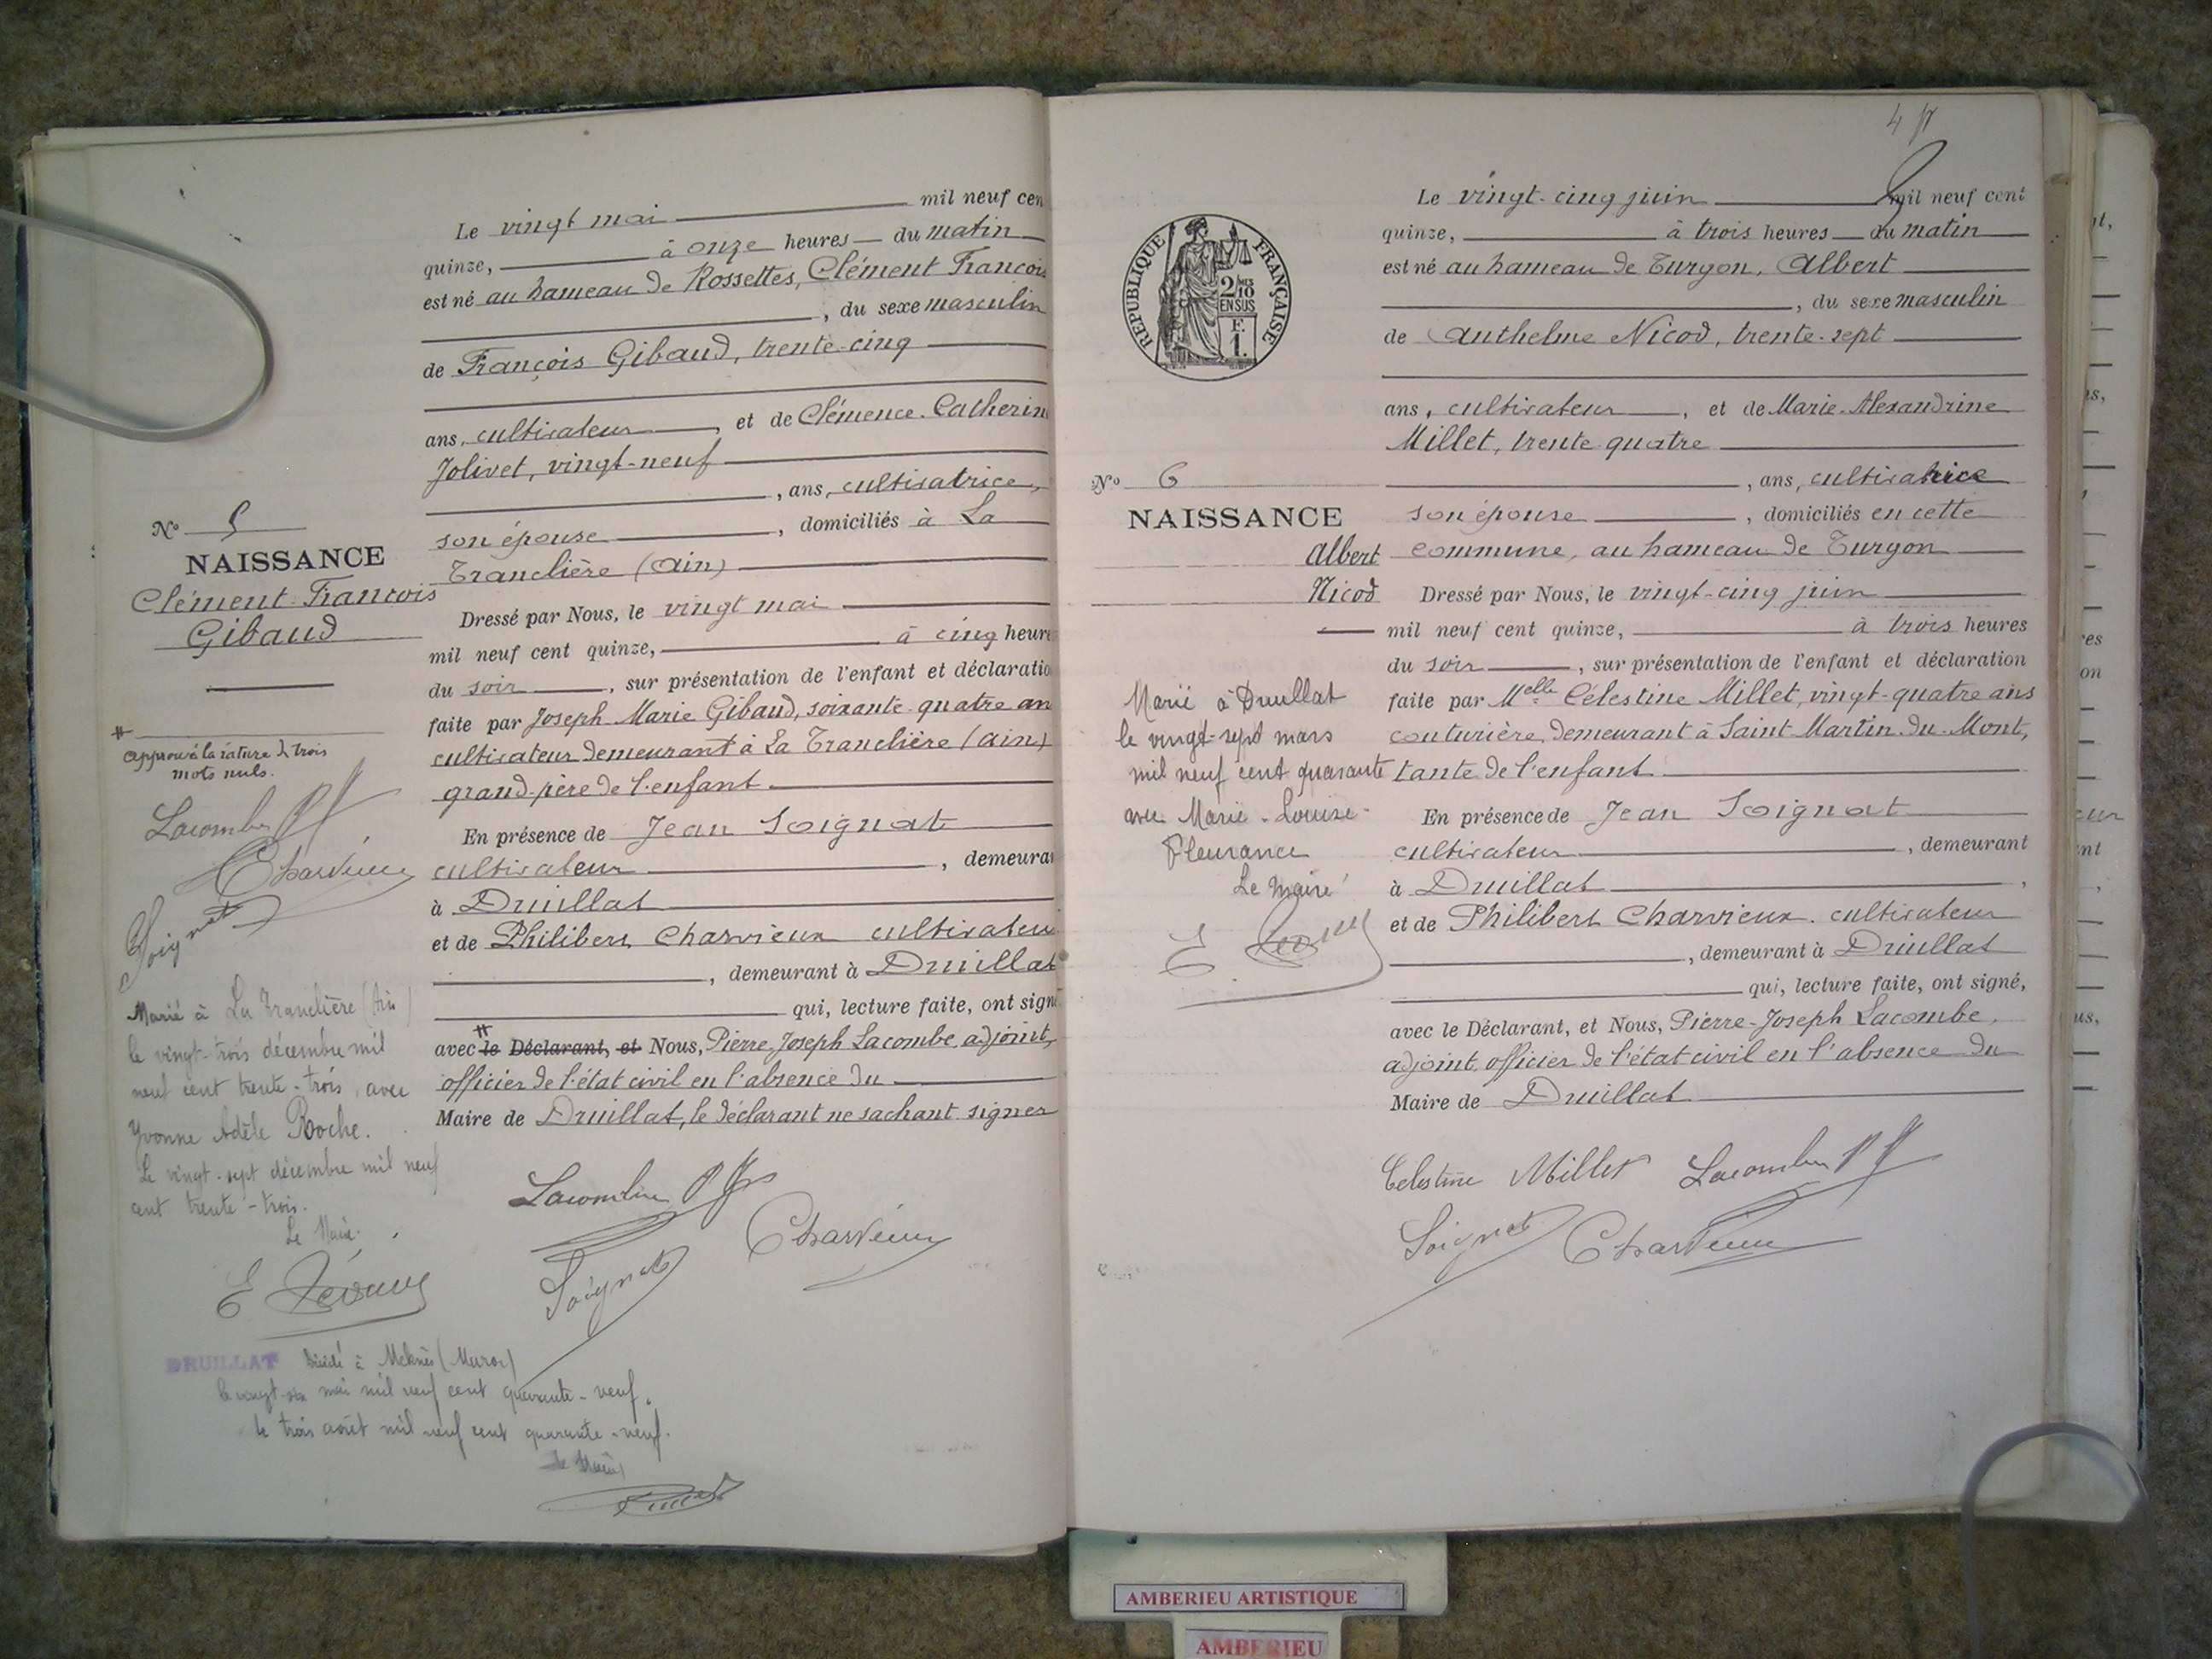 Le vingt mai mil neuf cen
quinze, à onze heures du matin
est né au hameau de Rossettes, Clément François
, du sexe masculin
de François Gibaud, trente-cinq
ans, cultivateur, et de Clémence-Catherin
Jolivet, vingt-neuf
, ans, cultivatrice,
son épouse, domiciliés à La
Tranclière (Ain)
Dressé par Nous, le vingt mai
mil neuf cent quinze, à cinq heure
du soir, sur présentation de l'enfant et déclaratio
faite par Joseph Marie Gibaud, soixante-quatre an
cultivateur demeurant à La Tranclière (Ain)
grand-père de l'enfant.
En présence de Jean Soignat
cultivateur, demeuran
à Druillat
et de Philibert Charvieux cultivateu
, demeurant à Druillat
qui, lecture faite, ont signé
avec # le Déclarant, et Nous, Pierre Joseph Lacombe, adjoint,
officier de l'état civil en l'absence du
Maire de Druillat, le déclarant ne sachant signer
Lacombe
Soignat
Charvieux
N° 5
NAISSANCE
Clément François
Gibaud
#
Approuvé la rature de trois
mots nuls.
Lacombe
Charvieux
Soignat
Marié à La Tranclière (Ain)
le vingt-trois décembre mil
neuf cent trente-trois, avec
Yvonne Adèle Roche.
Le vingt-sept décembre mil neuf
cent trente-trois.
Le Maire
DRUILLAT Décédé à Meknès (Maroc)
le vingt-six mai mil neuf cent quarante-neuf.
le trois août mil neuf cent quarante-neuf.
Le Maire
4
Le vingt-cinq juin mil neuf cent
quinze, à trois heures du matin
est né au hameau de Turgon, Albert
, du sexe masculin
de Anthelme Nicod, trente-sept
ans, cultivateur, et de Marie-Alexandrine
Millet, trente quatre
, ans, cultivatrice
son épouse, domiciliés en cette
commune, au hameau de Turgon
Dressé par Nous, le vingt-cinq juin
mil neuf cent quinze, à trois heures
du soir, sur présentation de l'enfant et déclaration
faite par Melle Célestine Millet, vingt-quatre ans
couturière, demeurant à Saint Martin-du-Mont,
tante de l'enfant
En présence de Jean Soignat
cultivateur, demeurant
à Druillat,
et de Philibert Charvieux cultivateur
, demeurant à Druillat
qui, lecture faite, ont signé,
avec le Déclarant, et Nous, Pierre-Joseph Lacombe,
adjoint officier de l'état civil en l'absence du
Maire de Druillat
Celestine Millet Lacombe
Soignat Charvieux
REPUBLIQUE FRANÇAISE
2/10
EN SUS
F.
1.
N° 6
NAISSANCE
Albert
Nicod
Marié à Druillat
le vingt-sept mars
mil neuf cent quarante
avec Marie-Louise
Fleurance
Le Maire
AMBERIEU ARTISTIQUE
AMBERIEU